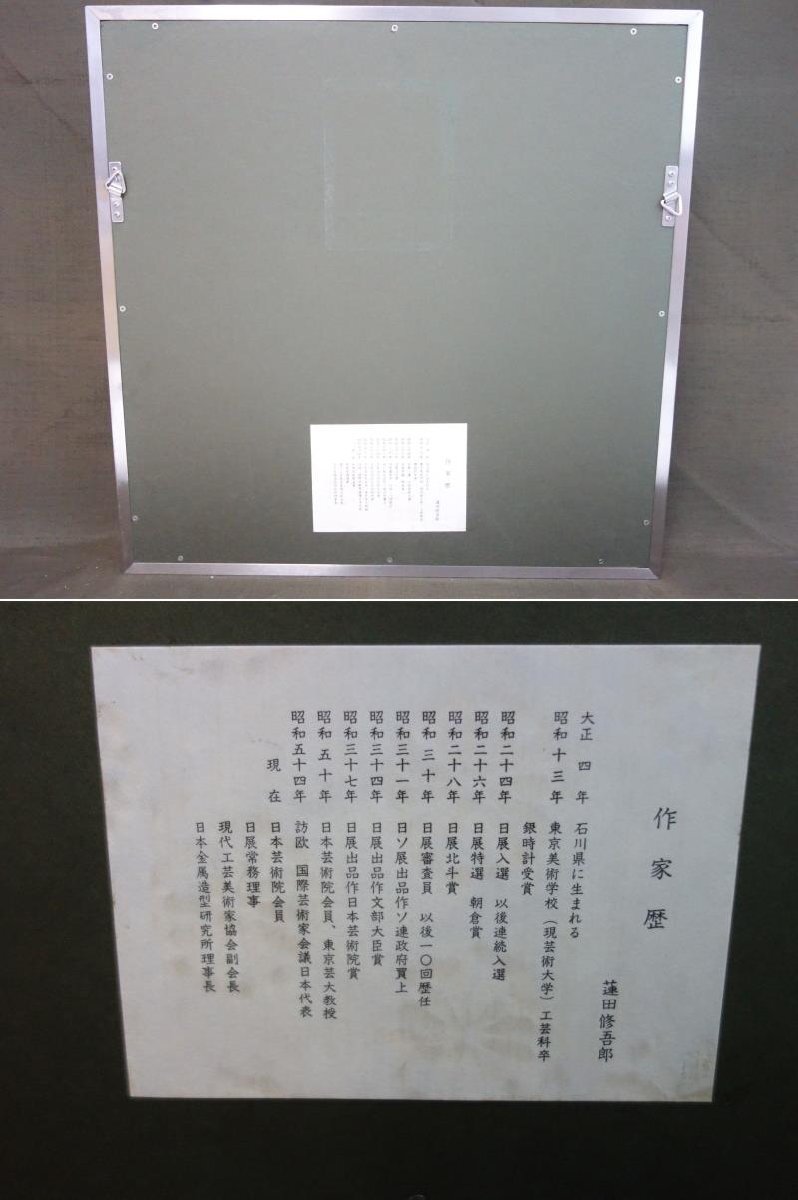 作家歴
蓮田修吾郎
大正四年 石川県に生まれる
昭和十三年 東京美術学校(現芸術大学)工芸科卒
銀時計受賞
昭和二十四年 日展入選 以後連続入選
昭和二十六年 日展特選 朝倉賞
昭和二十八年 日展北斗賞
昭和三十年 日展審査員 以後一〇回歴任
昭和三十一年 日ソ展出品作ソ連政府買上
昭和三十四年 日展出品作文部大臣賞
昭和三十七年 日展出品作日本芸術院賞
昭和五十年 日本芸術院会員、東京芸大教授
昭和五十四年 訪欧 国際芸術家会議日本代表
現在 日本芸術院会員
日展常務理事
現代工芸美術家協会副会長
日本金属造型研究所理事長